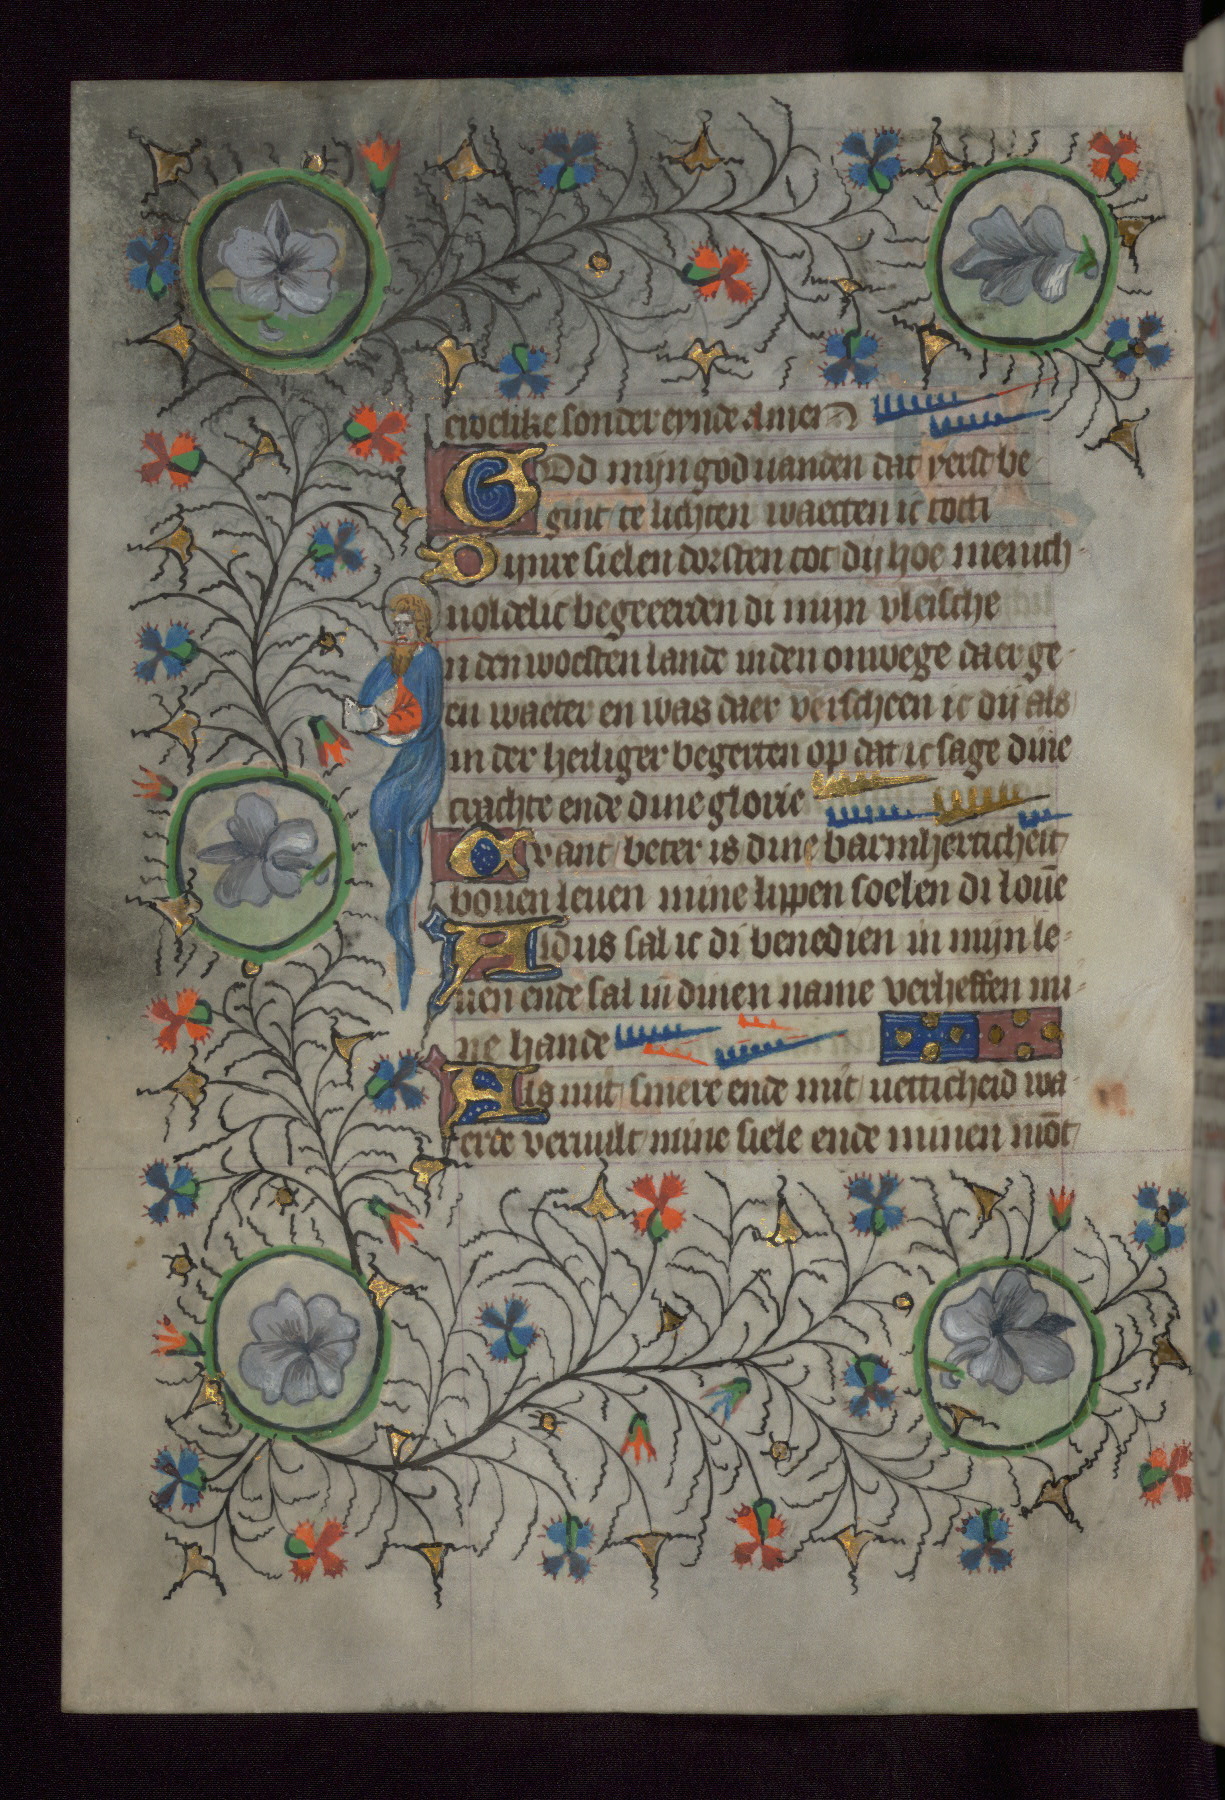 ewelike sonder eynde Amen
God mijn god uanden dat yerst be-
gint te lichten waecten ic totti
Dijnre sielen dorsten tot dij hoe menich-
uoldelic begeerden di mijn vleische
In den woesten lande inden onwege daer ge-
en waeter en was daer verscheen ic dij als
in der heiliger begerten op dat ic sage dine
crachte ende dine glorie
Want beter is dine barmherticheit
bouen leuen mine lippen soelen di louē
Aldus sal ic di benedien in mijn le-
uen ende sal in dinen name verheffen mi-
ne hande
Als mit smere ende mit uetticheid wa-
erde veruult mine siele ende minen mōt